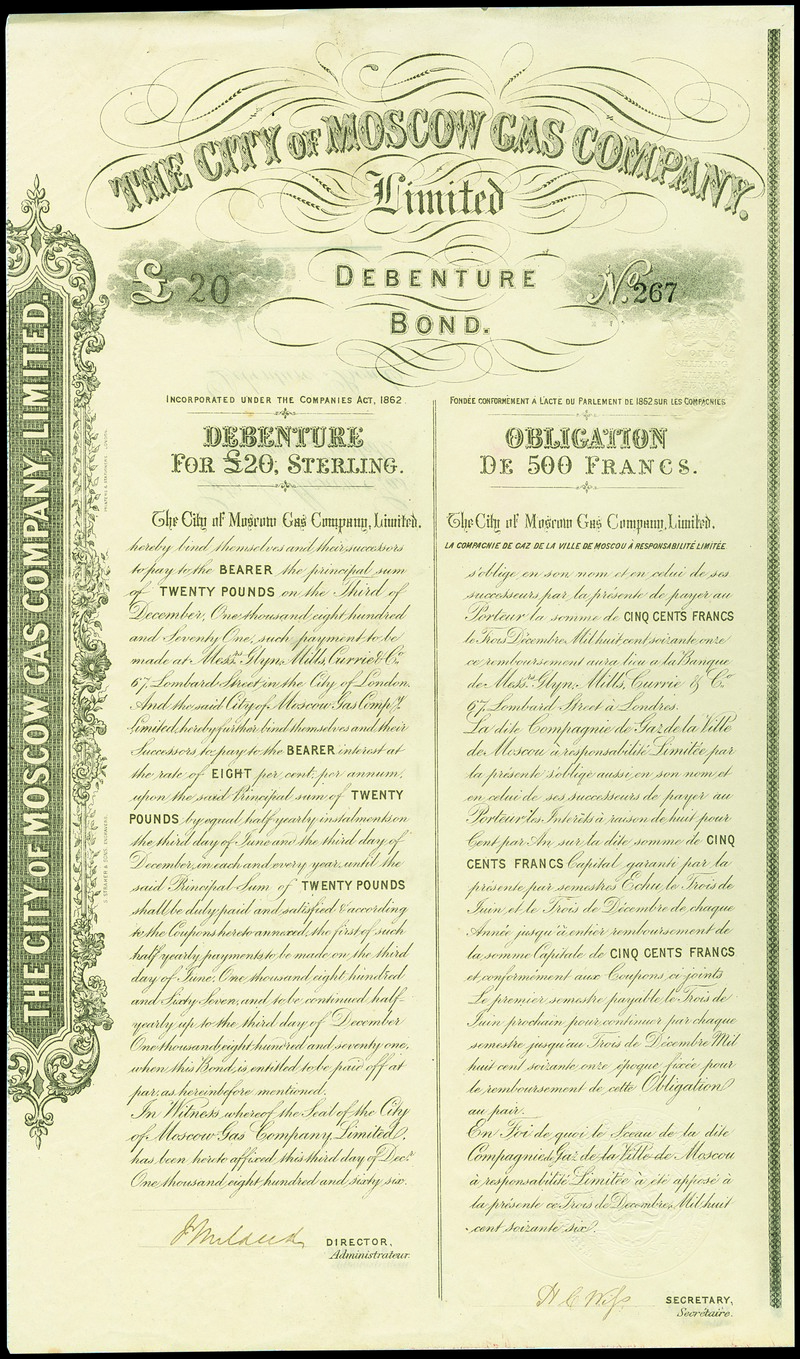 THE CITY OF MOSCOW GAS COMPANY.
Limited
£ 20
DEBENTURE
BOND.
No. 267
THE CITY OF MOSCOW GAS COMPANY, LIMITED.
INCORPORATED UNDER THE COMPANIES ACT, 1862
DEBENTURE
FOR £20, STERLING.
The City of Moscow Gas Company, Limited,
hereby bind themselves and their successors
to pay to the BEARER the principal sum
of TWENTY POUNDS on the Third of
December, One thousand eight hundred
and Seventy One, such payment to be
made at Messrs. Glyn, Mills, Currie & Co.
67, Lombard Street, in the City of London.
And the said City of Moscow Gas Compy.
Limited, hereby further bind themselves and their
Successors to pay to the BEARER interest at
the rate of EIGHT per cent: per annum,
upon the said Principal sum of TWENTY
POUNDS by equal half yearly instalments on
the third day of June and the third day of
December, in each and every year, until the
said Principal Sum of TWENTY POUNDS
shall be duly paid and satisfied & according
to the Coupons hereto annexed, the first of such
half yearly payments to be made on the third
day of June, One thousand eight hundred
and Sixty Seven, and to be continued half-
yearly up to the third day of December
One thousand eight hundred and seventy one,
when this Bond, is entitled to be paid off at
par, as hereinbefore mentioned.
In Witness whereof the Seal of the City
of Moscow Gas Company, Limited,
has been hereto affixed this third day of Decr.
One thousand, eight hundred and sixty six.
DIRECTOR,
Administrateur.
FONDÉE CONFORMÉMENT À L'ACTE DU PARLEMENT DE 1862 SUR LES COMPAGNIES
OBLIGATION
DE 500 FRANCS.
The City of Moscow Gas Company, Limited.
LA COMPAGNIE DE GAZ DE LA VILLE DE MOSCOU À RESPONSABILITÉ LIMITÉE
s'oblige en son nom et en celui de ses
successeurs par la présente de payer au
Porteur la somme de CINQ CENTS FRANCS
le Trois Décembre Mil huit cent soixante onze
ce remboursement aura lieu a la Banque
de Messrs. Glyn, Mills, Currie & Co.
67, Lombard Street à Londres.
La dite Compagnie de Gaz de la Ville
de Moscou à responsabilité Limitée par
la présente s'oblige aussi en son nom et
en celui de ses successeurs de payer au
Porteur les Intérêts à raison de huit pour
Cent par An sur la dite somme de CINQ
CENTS FRANCS Capital garanti par la
présente par semestres Echu le Trois de
Juin et le Trois de Décembre de chaque
Année jusqu'à entier remboursement de
la somme Capitale de CINQ CENTS FRANCS
et conformément aux Coupons ci joints
Le premier semestre payable le Trois de
Juin prochain pour continuer par chaque
semestre jusqu'au Trois de Décembre Mil
huit cent soixante onze époque fixée pour
le remboursement de cette Obligation
au pair.
En Foi de quoi le Sceau de la dite
Compagnie de Gaz de la Ville de Moscou
à responsabilité Limitée a été apposé à
la présente ce Trois de Decembre Mil huit
cent soixante six.
SECRETARY,
Secrétaire.